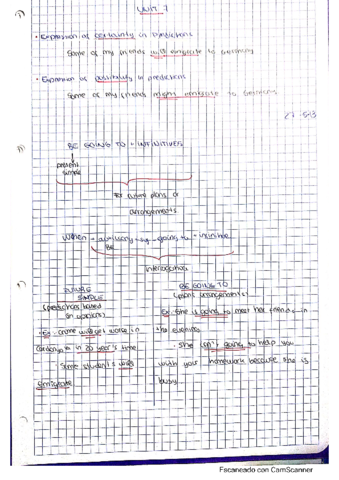 UNIT 7
• Expression of certainty in predictions
Some of my friends will emigrate to Germany
• Expression of possibility in predictions
Some of my friends might emigrate to Germany
BE GOING TO + INFINITIVES
present
simple
For future plans or
arrangements
When + auxiliary + sg + going to + infinitive
Be
Interrogatives
FUTURE SIMPLE
BE GOING TO
(predictions based
on opinions)
(plans arrangements)
Ex: crime will get worse in
Catalonya in 20 year's time
Some students will
emigrate
Ex: She is going to meet her friends in
the evening
· She isn't going to help you
with your homework because she is
busy
Escaneado con CamScanner